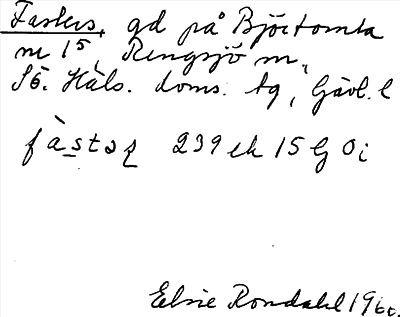 Fasters, gd på Björtomta
nr 15, Rengsjö sn,
Sö. Häls. doms. tg, Gävl. l
fàstəʂ 239 ek 15 G Oi
Elsie Rondahl 1960.